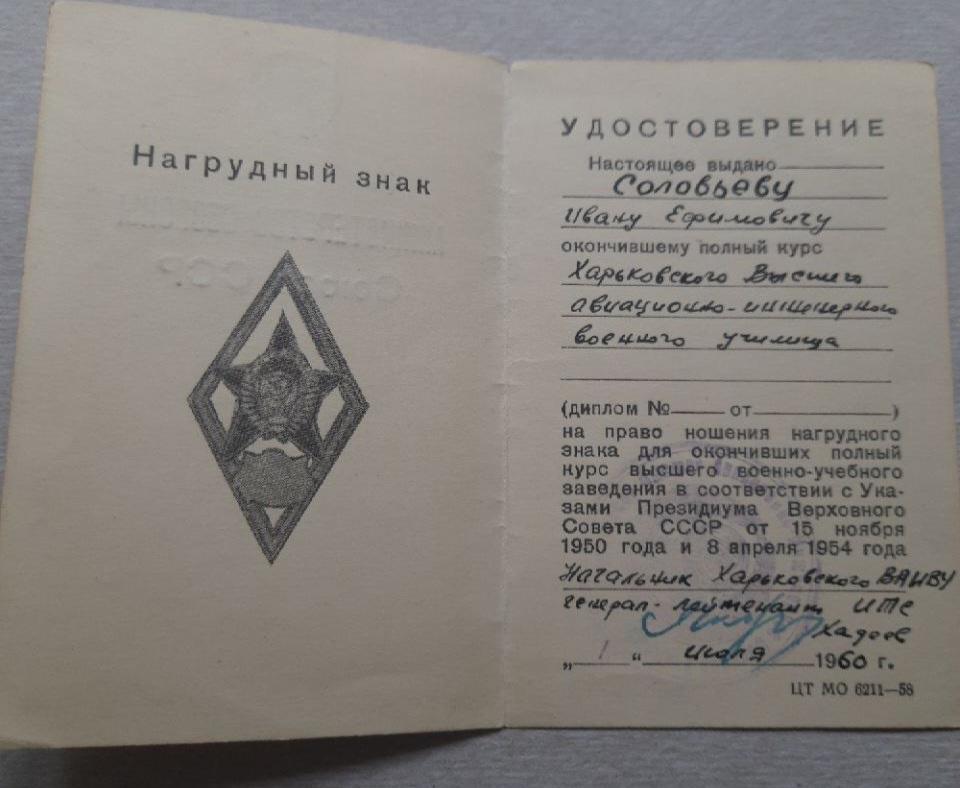 Нагрудный знак
УДОСТОВЕРЕНИЕ
Настоящее выдано
Соловьеву
Ивану Ефимовичу
окончившему полный курс
Харьковского Высшего
авиационно-инженерного
военного училища
(диплом № от )
на право ношения нагрудного
знака для окончивших полный
курс высшего военно-учебного
заведения в соответствии с Ука-
зами Президиума Верховного
Совета СССР от 15 ноября
1950 года и 8 апреля 1954 года
Начальник Харьковского ВАИВУ
генерал-лейтенант ИТС
Хадеев
„ 1 “ июля 1960 г.
ЦТ МО 6211—58